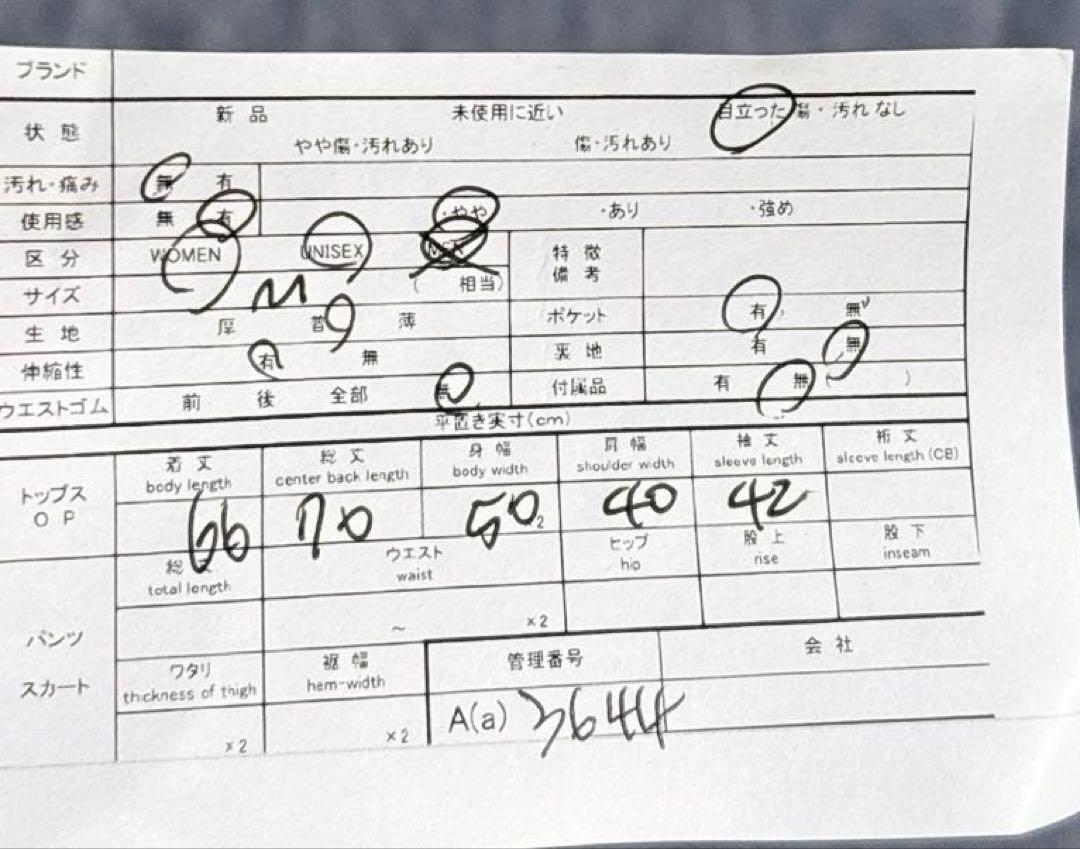 ブランド
状態 新品 未使用に近い 目立った傷・汚れなし
やや傷・汚れあり 傷・汚れあり
汚れ・痛み 無 有
使用感 無 有 ・やや ・あり ・強め
区分 WOMEN UNISEX 特徴備考
サイズ M ( 相当)
生地 厚 普 薄 ポケット 有 無
伸縮性 有 無 裏地 有 無
ウエストゴム 前 後 全部 無 付属品 有 無 ( )
平置き実寸(cm)
着丈 総丈 身幅 肩幅 袖丈 裄丈
body length center back length body width shoulder width sleeve length sleeve length (CB)
トップス
OP 66 70 50 2 40 42
総 ウエスト ヒップ 股上 股下
total length waist hip rise inseam
~ ×2
パンツ
スカート
ワタリ 裾幅 管理番号 会社
thickness of thigh hem-width
×2 ×2 A(a) 3644